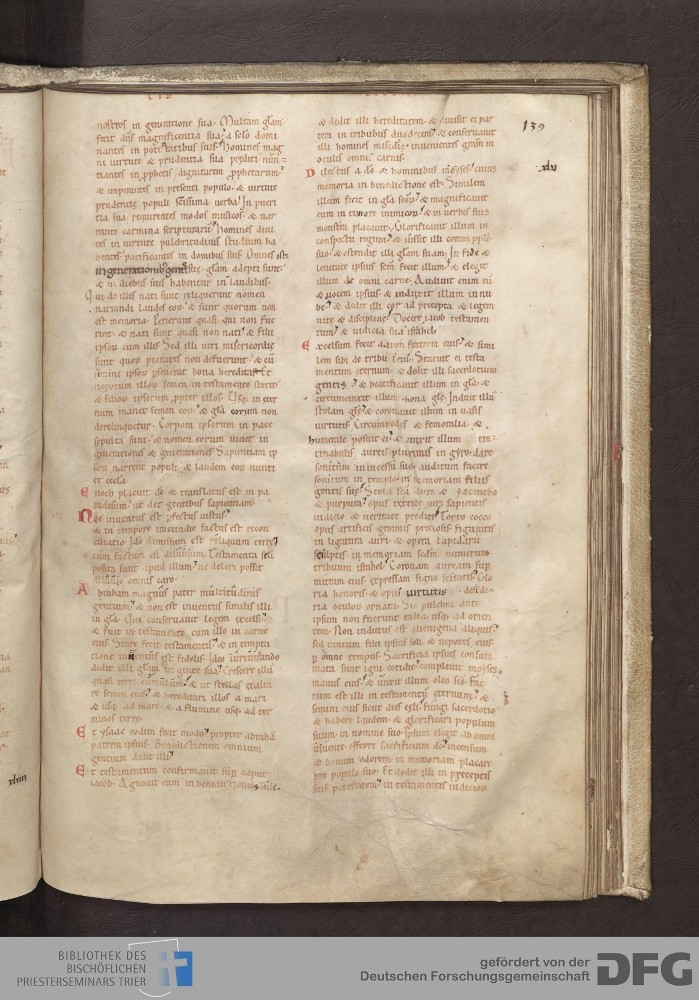 139
nostros in generatione sua. Multam glam
fecit dns magnificentia sua a sclo domi
nantes in potestatibus suis. Homines mag
ni virtute & prudentia sua prediti. nun
tiantes in pphetis dignitatem pphetarum.
& imperantes in presenti populo. & virtute
prudentie populi scissima verba. In pueri
tia sua requirentes modos musicos & nar
rantes carmina scripturarum. Homines divi
tes in virtute pulchritudinis studium ha
bentes. pacificantes in domibus suis. Omnes isti
in generationib gentis sue glam adepti sunt
& in diebus suis habentur in laudibus.
Qui de illis nati sunt reliquerunt nomen
narrandi laudes eor. & sunt quorum non
est memoria. Perierunt quasi qui non fue
rint. & nati sunt quasi non nati. & filii
ipsor cum illis. Sed illi viri misericordie
sunt quor pietates non defuerunt. & cu
semine ipsor pseverant bona. hereditas
nepotum illor semen in testamentis stetit
& filii ipsorum ppter illos. Usq in eter
num manet semen eor. & gla eorum non
derelinquetur. Corpora ipsorum in pace
sepulta sunt. & nomen eorum vivet in
generationes & generationes. Sapientiam ip
sor narrent populi. & laudem eor nunti
et eccla.
Enoch placuit do & translatus est in pa
radisum. ut det gentibus sapientiam.
Noe inventus est pfectus iustus
& in tempore iracundie factus est recon
ciliatio. Ido dimissum est reliquum terre
cum factum est diluvium. Testamenta sclī
posita sunt apud illum. ne deleri possit
diluvio omnis caro.
Abraham magnus pater multitudinis
gentium. & non est inventus similis illi
in gla. Qui conservavit legem excelsi.
& fuit in testamento cum illo. in carne
eius. Stare fecit testamentu. & in tempta
tione inventus est fidelis. Ideo iureiurando
dedit illi glam in gente sua. Crescere illu
quasi terre cumulum. & ut stellas exalta
re semen eius. & hereditari illos a mari
& usq ad mare. & a flumine usq ad ter
minos terre.
Et ysaac eodem fecit modo ppter abraha
patrem ipsius. Benedictionem omnium
gentium dedit illi.
Et testamentum confirmavit sup caput
iacob. Agnovit eum in benedictionib suis.
xliii
& dedit illi hereditatem. & divisit ei par
tem in tribubus duodecim. & conservavit
illi homines misedie. invenientes gram in
oculis omnis carnis.
xlv
Dilectus a do & hominibus moyses. cuius
memoria in benedictione est. Similem
illum fecit in gla scor. & magnificavit
eum in timore inimicor. & in verbis suis
monstra placavit. Glorificavit illum in
conspectu regum. & iussit illi coram pplo
suo. & ostendit illi glam suam. In fide &
lenitate ipsius scm fecit illum. & elegit
illum de omni carne. Audivit enim eu
& vocem ipsius. & induxit illum in nu
be. & dedit illi cor ad precepta & legem
vite & discipline. Docere iacob testamen
tum. & iudicia sua israhel.
Excelsum fecit aaron fratrem eius. & simi
lem sibi de tribu levi. Statuit ei testa
mentum eternum. & dedit illi sacerdotium
gentis. & beatificavit illum in gla. &
circumcinxit illum zona gle. Induit illu
stolam gle. & coronavit illum in vasis
virtutis. Circumpedes & femoralia. &
humerale posuit ei. & cinxit illum tin
tinabulis aureis plurimis in gyro. dare
sonitum in incessu suo. auditum facere
sonitum in templo. in memoriam filiis
gentis sue. Stola sca auro & hyacincto
& purpura. opus textile viri sapientis
iudicio & veritate prediti. Torto cocco
opus artificis gemmis preciosis figuratis
in ligatura auri. & opera lapidarii
sculptis. in memoriam scdm numerum
tribuum israhel. Coronam auream sup
mitram eius. expressam signo scitatis. Glo
ria honoris. & opus virtutis. deside
ria oculor ornata. Sic pulchra ante
ipsum non fuerunt talia. usq ad orien
tem. Non indutus est alienigena aliquis.
sed tantum filii ipsius soli. & nepotes eius.
p omne tempus. Sacrificia ipsius consum
mata sunt igni cotidie. complevit moyses
manus eius. & unxit illum oleo sco. Fac
tum est illi in testamentu eternum. &
semini eius sicut dies celi. fungi sacerdotio
& habere laudem. & glorificari populum
suum in nomine suo. Ipsum elegit ab omni
vivente. offerre sacrificium do. incensum
& bonum odorem. in memoriam placare
pro populo suo. Et dedit illi in preceptis
suis potestatem. in testamentis iudicior
BIBLIOTHEK DES
BISCHÖFLICHEN
PRIESTERSEMINARS TRIER
gefördert von der
Deutschen Forschungsgemeinschaft
DFG